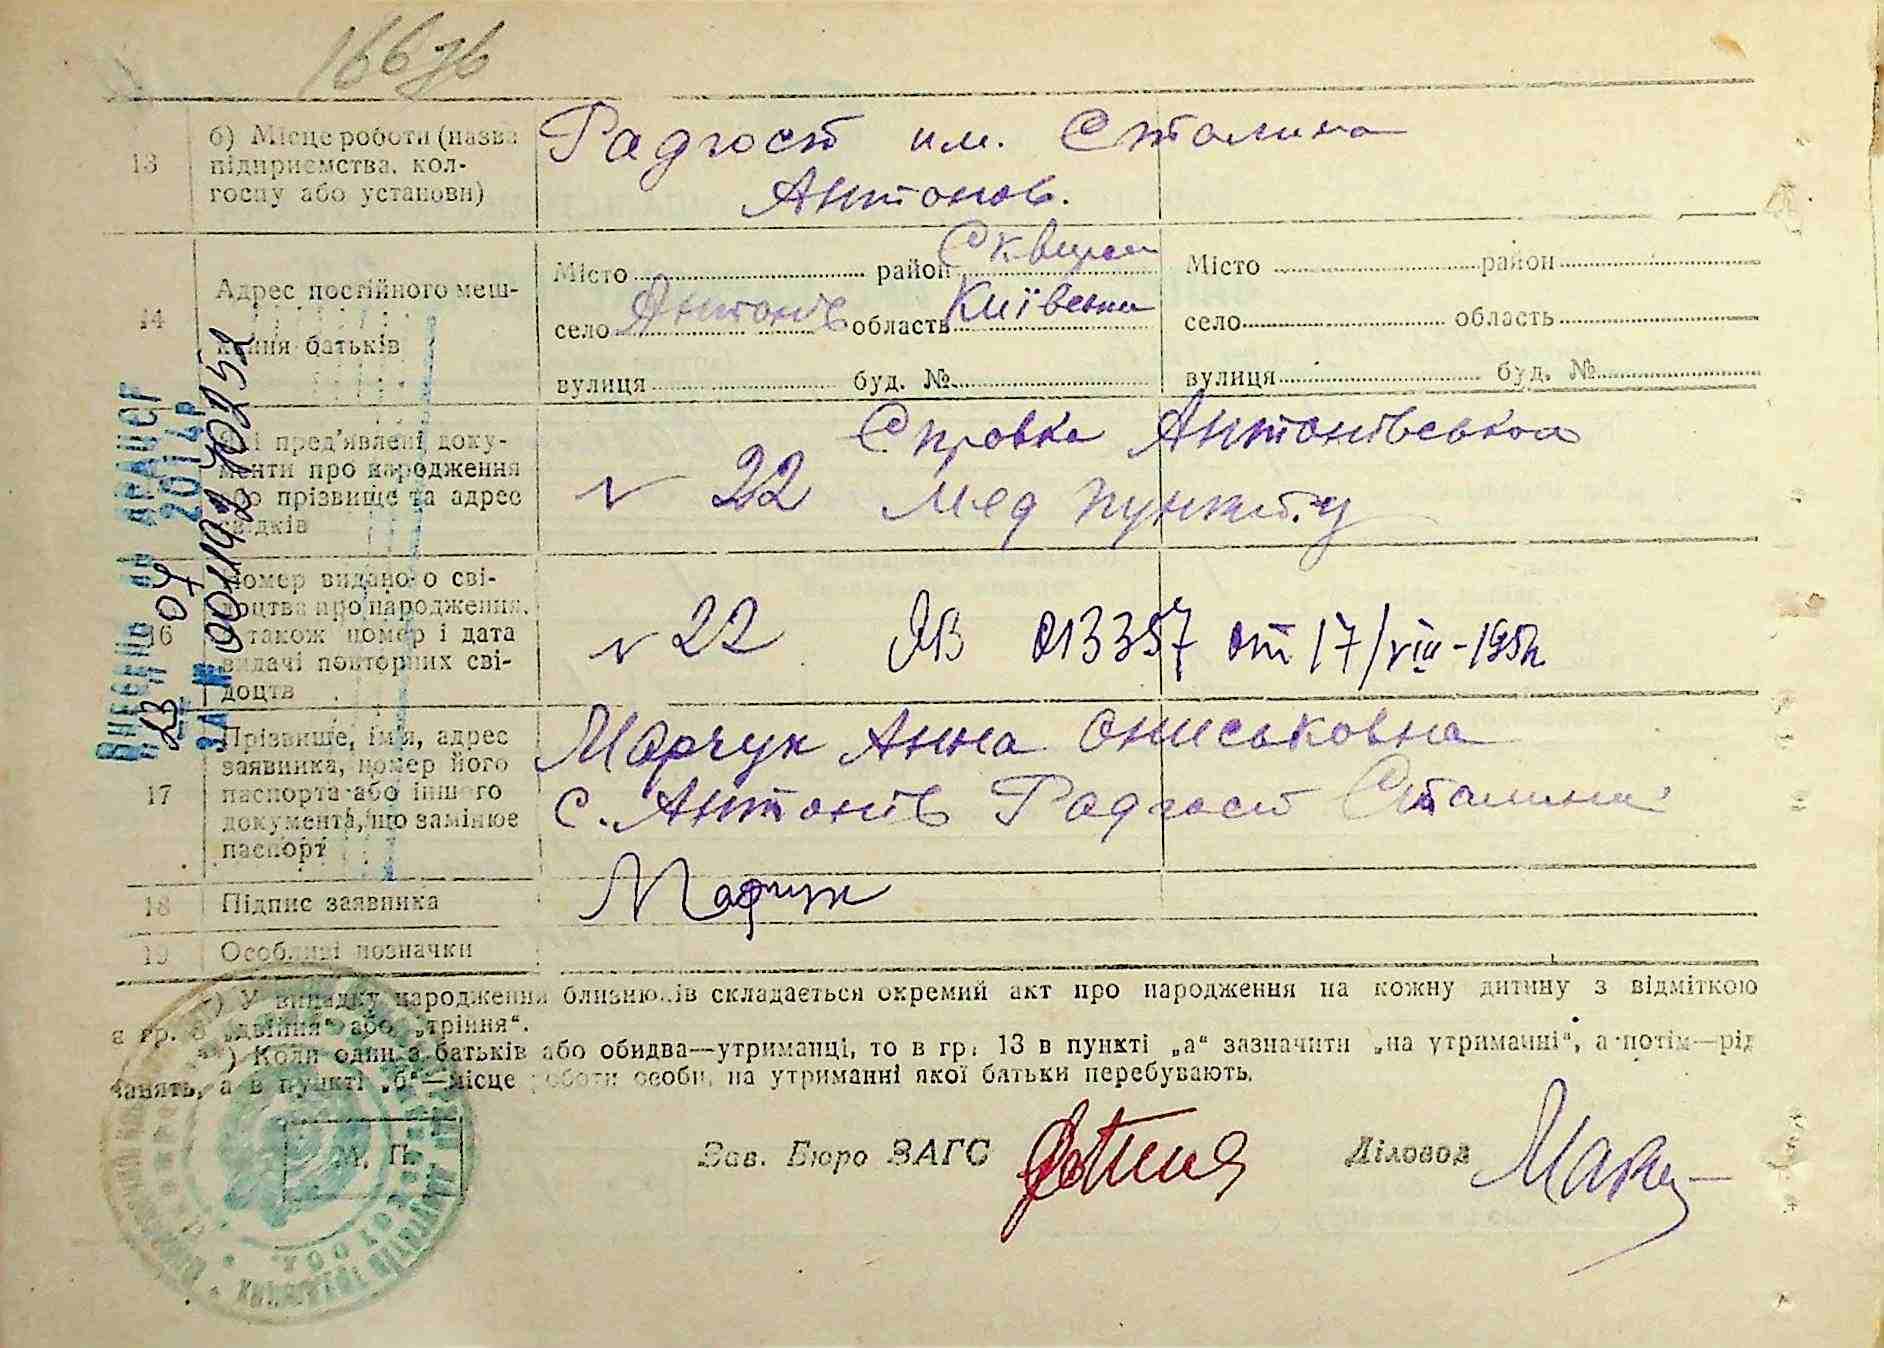 13
б) Місце роботи (назва
підприємства, кол-
госпу або установи)
Радгосп им. Сталина
Антонов.
14
Адрес постійного меш-
кання батьків
Місто район Сквирськ
село Антонів область Київська
вулиця буд. №
Місто район
село область
вулиця буд. №
пред'явлені доку-
менти про народження
або прізвище та адрес
свідків
Справка Антонівського
№ 22 Мед пункту
16
Номер виданого сві-
доцтва про народження,
а також номер і дата
видачі повторних сві-
доцтв
№ 22 ЯВ 013357 от 17/VIII-195
17
Прізвище, ім'я, адрес
заявника, номер його
паспорта або іншого
документа, що замінює
паспорт
Марчук Анна Ониськовна
с. Антонів Радгосп Сталина
18
Підпис заявника
Марчук
19
Особливі позначки
*) У випадку народження близнюків складається окремий акт про народження на кожну дитину з відміткою
в гр. „двійня“ або „трійня“.
) Коли один з батьків або обидва—утриманці, то в гр. 13 в пункті „а“ зазначити „на утриманні“, а потім—рід
занять, а в пункті „б“—місце роботи особи, на утриманні якої батьки перебувають.
М. П.
Зав. Бюро ЗАГС
Діловод
Внесено до ДРАЦСГ
23 07 2014 Р
ЗА № 00114970252